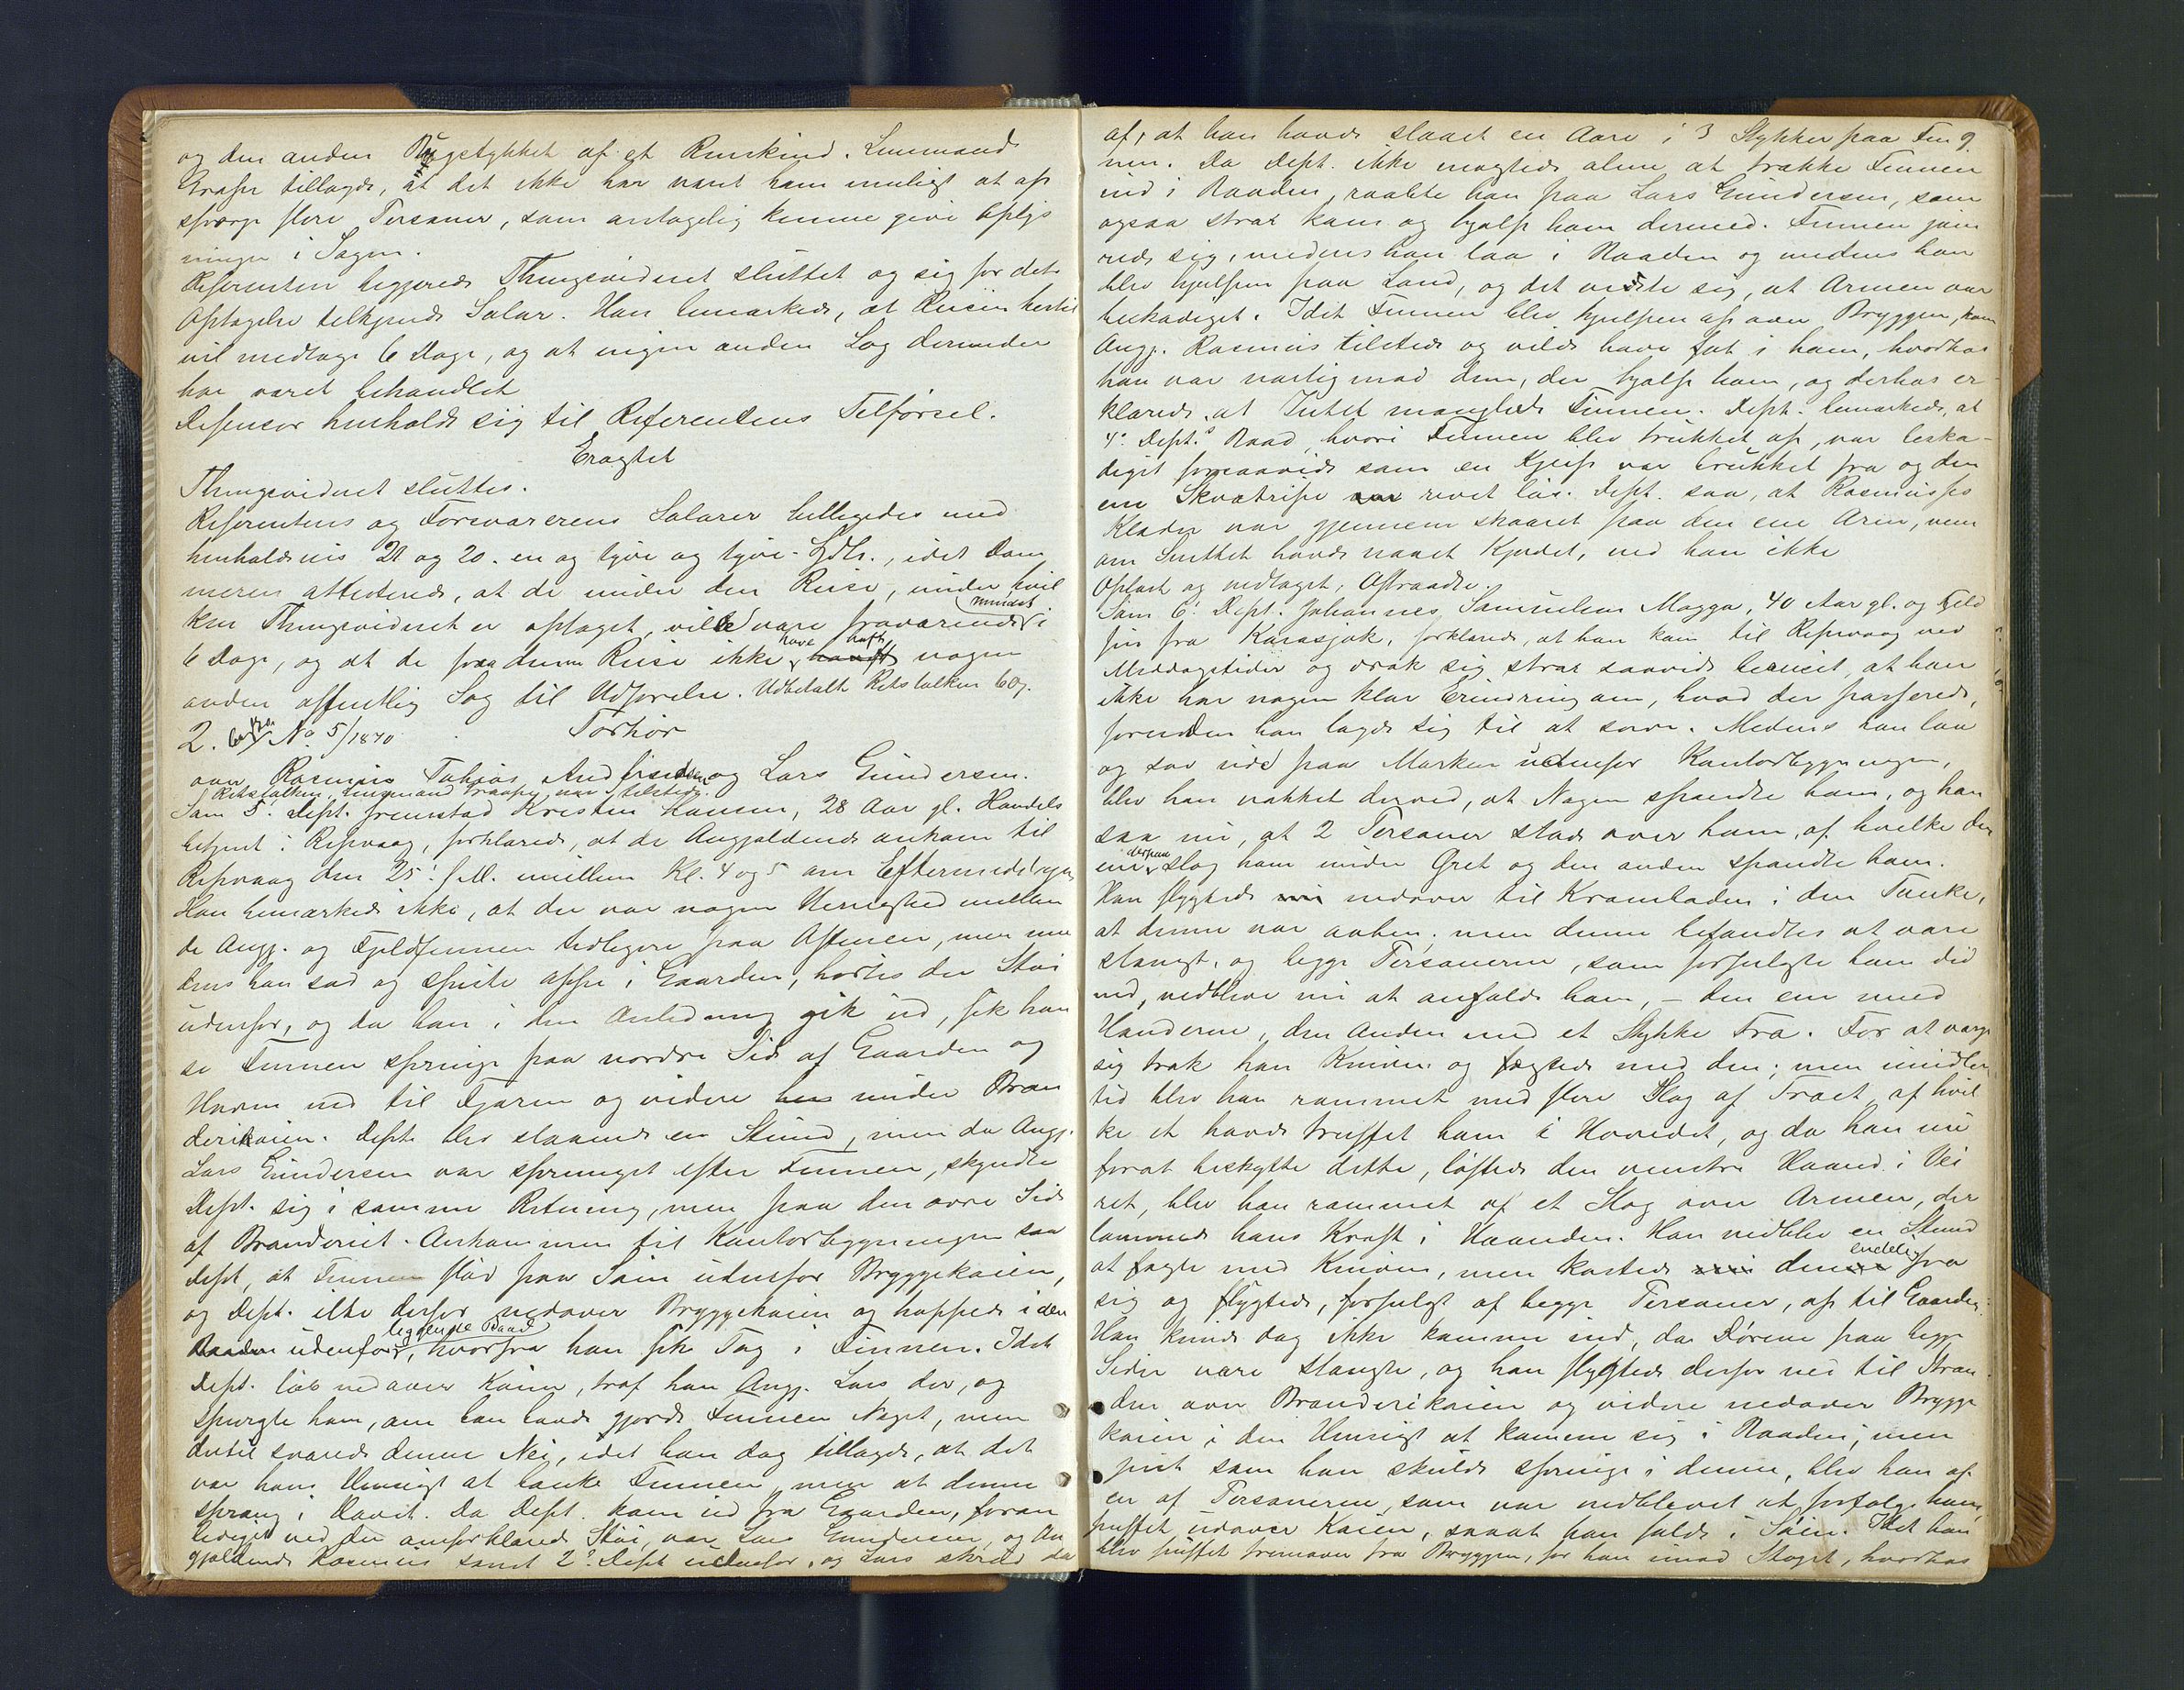 og den anden Rygstykket af et Renskind. Lensmand
Graspe tillagde, at det ikke har været ham muligt at af
spørge flere Personer, som antagelig kunne give Oplys
ninger i Sagen.
Referenten begjerede Thingsvidnet sluttet og sig for dets
Optagelse tilkjendt Salær. Han bemærkede, at Reisen hertil
vil medtage 6 Dage, og at ingen anden Sag derunder
har været behandlet
Defensor henholdt sig til Referentens Tilførsel.
Eragtet
Thingsvidnet sluttes.
Referentens og Forsvarerens Salærer billigedes med
henholdsvis 21 og 20. en og tyve og tyve. Spdlr., idet Dom
meren attesterede, at de under den Reise, under hvil
ket Thingsvidnet er optaget, ville være fraværende mindst i
6 Dage, og at de paa denne Reise ikke have havt nogen
anden offentlig Sag til Udførelse. Udbetalt Retstolken 60 ß.
2. No 5/1870 Forhør
over Rasmus Tobias Andersen og Lars Gundersen.
Retstolken, Lensmand Graspe var tilstede.
Som 5. Dept. fremstod Kristen Hansen, 28 Aar gl. Handels
betjent i Repvaag, forklarede, at de Angjældende ankom til
Repvaag den 25. f.M. mellem Kl. 4 og 5 om Eftermiddagen
Han bemærkede ikke, at der var nogen Uenighed mellem
de Angj. og Fjeldfinnen tidligere paa Aftenen, men me
dens han sad og spiste oppe i Gaarden, hørtes der Støi
udenfor, og da han i den Anledning gik ud, fik han
se Finnen springe paa nordre Side af Gaarden og
Haven ned til Fjæren og videre hen under Bræn
derikaien. Dept. blev staaende en Stund, men da Angj.
Lars Gundersen var sprunget efter Finnen, skyndte
Dept. sig i samme Retning, men paa den øvre Side
af Brænderiet. Ankommen til Kontorbygningen saa
Dept, at Finnen flød paa Søen udenfor Bryggekaien,
og Dept. ilte derfor nedover Bryggekaien og hoppede i den
udenfor liggende Baad, hvorfra han fik Tag i Finnen. Idet
Dept. løb nedover Kaien, traf han Angj. Lars der, og
spurgte ham, om han havde gjort Finnen Noget, men
dertil svarede denne Nei, idet han dog tillagde, at det
var hans Hensigt at banke Finnen, men at denne
sprang i Havet. Da Dept. kom ud fra Gaarden, foran
lediget ved den omforklarede Støi, var Lars Gundersen og An
gjældende Rasmus samt 2. Dept. udenfor, og Lars skrød da
af, at han havde slaaet en Aare i 3 Stykker paa Fin
nen. Da Dept. ikke magtede alene at trække Finnen
ind i Baaden, raabte han paa Lars Gundersen, som
ogsaa strax kom og hjalp ham dermed. Finnen jam
rede sig, medens han laa i Baaden og medens han
blev hjulpen paa Land, og det viste sig, at Armen var
beskadiget. Idet Finnen blev hjulpen op over Bryggen, kom
Angj. Rasmus tilstede og vilde have fat i ham, hvorhos
han var vastig mod dem, der hjalp ham, og derhos er
klærede, at Intet manglede Finnen. Dept. bemærkede, at
4. Dept.s Baad, hvori Finnen blev trukket op, var beska
diget forsaavidt som en Kjeip var brukket fra og den
ene Skvætripe revet løs. Dept. saa, at Rasmus's
Klæder var gjennem skaaret paa den ene Arm, men
om Snittet havde naaet Kjødet, ved han ikke
Oplæst og vedtaget. Aftraadte.
Som 6. Dept. Johannes Samuelsen Magga, 40 Aar gl. og Fjeld
fin fra Karasjok, forklarede, at han kom til Repvaag ved
Middagstider og drak sig strax saavidt beruset, at han
ikke har nogen klar Erindring om, hvad der passerede,
førend han lagde sig til at sove. Medens han laa
og sov ude paa Marken udenfor Kontorbygningen,
blev han vækket derved, at Nogen spændte ham, og han
saa nu, at 2 Personer stod over ham, af hvilke den
ene derpaa slog ham under Øret og den anden spændte ham.
Han flygtede nedover til Kramboden i den Tanke,
at denne var aaben, men denne befandtes at være
stængt, og begge Personerne, som forfulgte ham did
ned, vedbleve nu at anfalde ham, – den ene med
Hænderne, den Anden med et Stykke Træ. For at værge
sig trak han Kniven og fægtede med den; men imidler
tid blev han rammet med flere Slag af Træet, af hvil
ke et havde truffet ham i Hovedet, og da han nu
forat beskytte dette, løftede den venstre Haand i Vei
ret, blev han rammet af et Slag over Armen, der
lammede hans Kraft i Haanden. Han vedblev en Stund
at fægte med Kniven, men kastede den endelig fra
sig og flygtede, forfulgt af begge Personer, op til Gaarden.
Han kunde dog ikke komme ind, da Dørene paa begge
Sider vare stængte, og han flygtede derfor ned til Stran
den over Brænderikaien og videre nedover Brygge
kaien i den Hensigt at komme sig i Baaden, men
just som han skulde springe i denne, blev han af
en af Personerne, som var vedblevet at forfølge ham,
puffet udover Kaien, saaat han faldt i Søen. Idet han
blev puffet fremover fra Bryggen, for han imod Staget, hvorhos